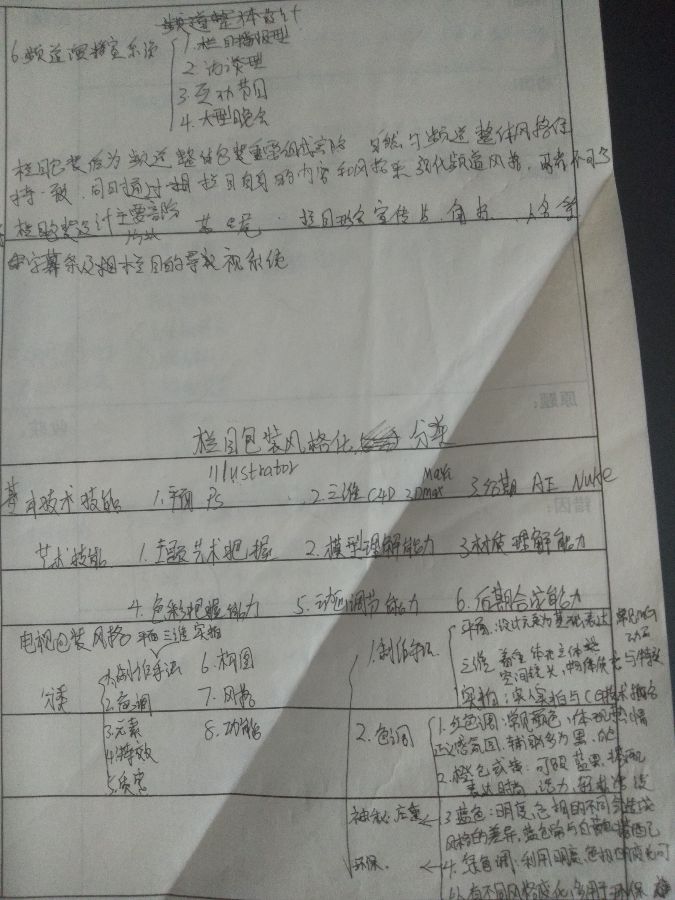 频道整体设计
6.频道演播室系统
1.栏目播报型
2.访谈型
3.互动节目
4.大型晚会
栏目包装作为频道整体包装重要组成实际 必然与频道整体风格保
持一致,同时通过栏目自身的内容和风格来强化频道风格,两者不可分
栏目包装设计主要 片头 片尾 栏目形象宣传片 角标 人名条
字幕条及栏目的导视系统
原题:
栏目包装风格化 分类
Illustrator
基本技术技能 1.平面 PS 2.三维 C4D 3Dmax Maya 3.后期 AE Nuke
错因:
艺术技能 1.主题艺术把握 2.模型理解能力 3.材质理解能力
4.色彩把握能力 5.动画调节能力 6.后期合成能力
电视包装风格 平面 三维 实拍
分类
1.制作手法 6.构图
2.色调 7.风格
3.元素 8.功能
4.特效
5.质感
1.制作手法
平面:设计元素为主 表达
三维 着重体现立体
空间镜头,物体质光与特效
实拍:实人实拍与CG技术结合
2.色调
1.红色调:常见颜色,体现热情
正义感氛围,辅助多为黑、白
2.橙色或黄:可配蓝黑搭配
表达时尚、活力、轻松
神秘.庄重 3.蓝色:明度,色相的不同会造成
风格的差异,蓝色常与白
环保. 4.绿色调:利用明度.色相
以有不同风格变化,多用于环保